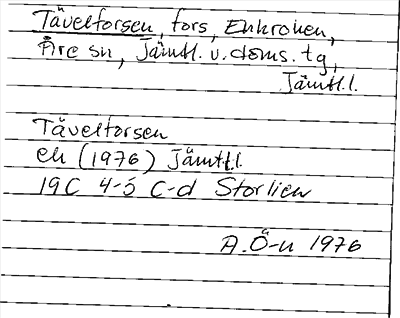 Tävelforsen, fors, Enkronen,
Åre sn, Jämtl. v. doms. tg,
Jämtl. l.
Täveltorsen
ek (1976) Jämtl. l.
19C 4-5 c-d Storlien
A. Ö-n 1976